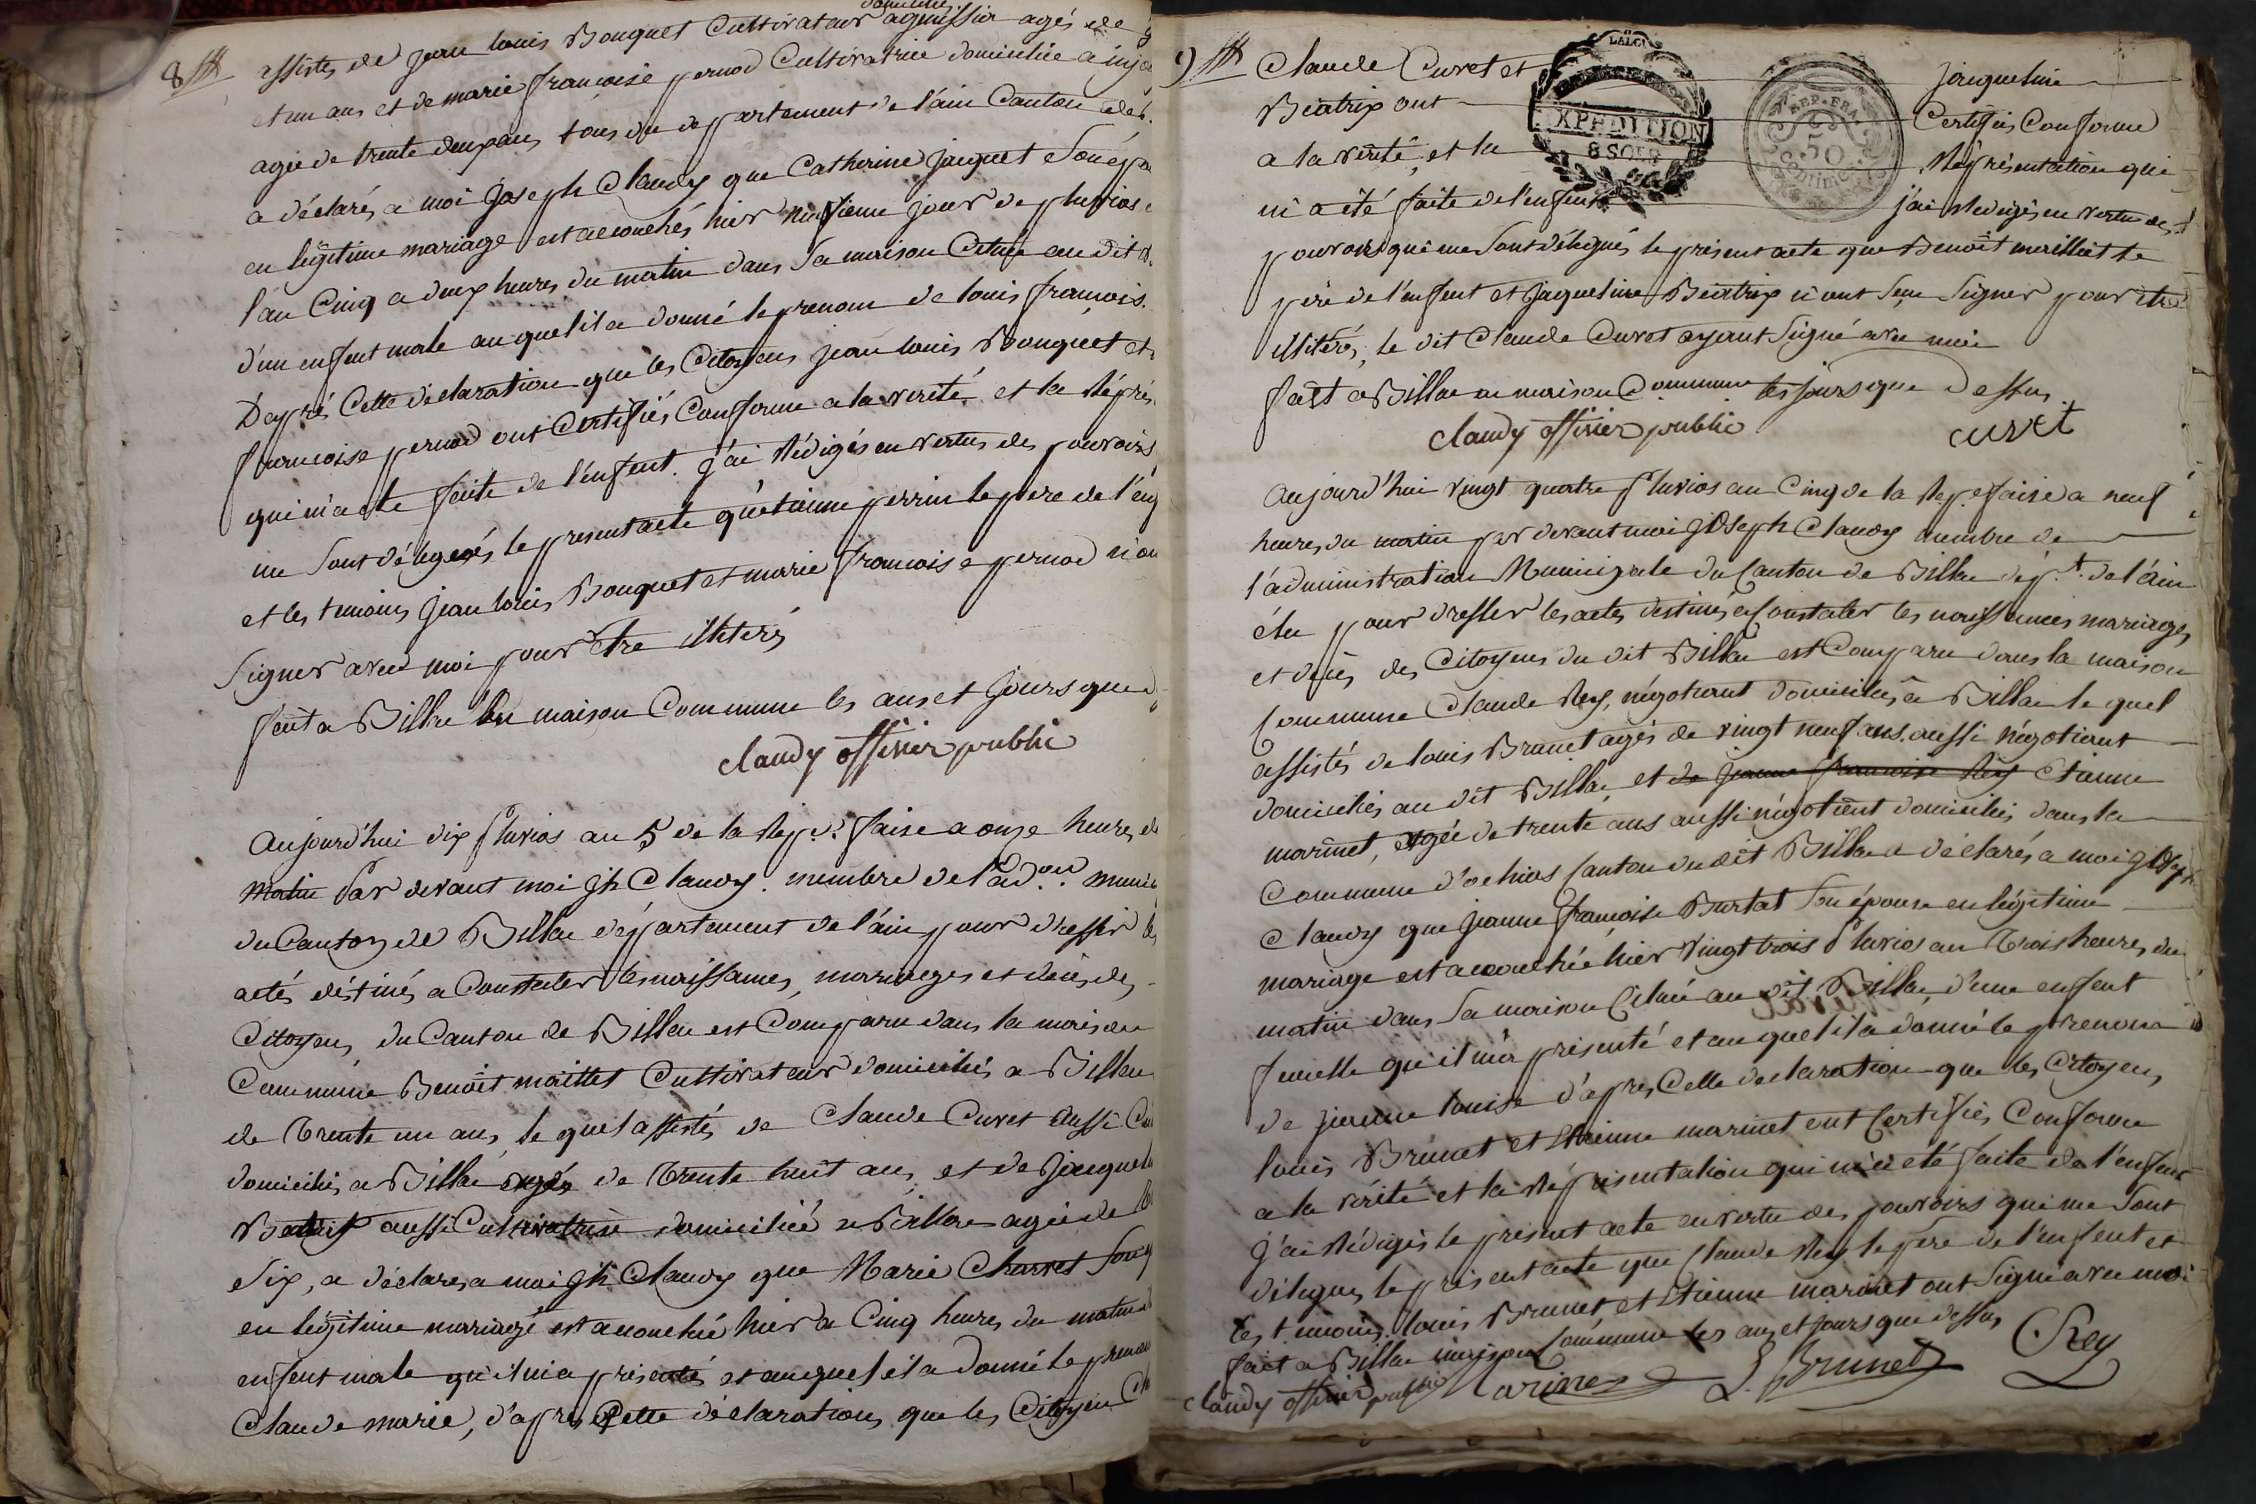 8
assistés de jean louis Bouquet Cultivateur domicilié aginissiu agés de
et un ans et de marie françoise pernod Cultivatrice domiciliée a inj
agée de trente deux ans tous du departement de l'ain Canton de b
a déclarés a moi Joseph Claudy que Catherine jacquet Son épo
en légitime mariage est accouchés hier neufieme jour de pluvios
l'an Cinq a deux heures du matin dans Sa maison Cituée au dit
d'un enfent male au quel il a donné le prenom de louis francois.
D'après Cette declaration que les Citoyens jean louis Bouquet et
francoise pernod ont Certifiés Conforme a la verité et la Répré
qui m'a ete faite de l'enfent. J'ai Rédigés en vertus des pouvoirs
me Sont délegués le present acte qu'etienne perrin le pere de l'en
et les temoins jean louis Bouquet et marie francoise pernod n'on
Signer avec moi pour être illiterés
fait a Billia en maison Commune les ans et jours que d
claudy officier public
Aujourd'hui dix pluvios an 5 de la Rep. faise a onze heures d
Matin Par devant moi Jh Claudy membre de l'adon. munic
du Canton de Billia département de l'ain pour dresser les
actes déstinés a Constater les naissances, mariages et décès des
Citoyens du Canton de Billia est Comparu dans la maison
Commune Benoît maillet Cultivateur domiciliés a Billia
de Trente un ans, le quel assistés de Claude Curet Aussi Cu
domiciliés a Billia agés de Trente huit ans et de Jaquel
Beatrix aussi Cultivatrice domiciliée a Billia agée de
Six, a déclarés a moi Jh Claudy que Marie Charvet Son
en légitime mariage est accouchée hier a Cinq heures du matin
enfent male qu'il m'a présenté et auquel il a donné le prenom
Claude marie, d'après Cette déclaration que les Citoyens
9
Claude Curet et jaqueline
Béatrix ont Certifiés Conforme
a la vérité, et la Réprésentation qui
m'a été faite de l'enfent j'ai Redigés en vertu des
pouvoirs qui me Sont délégués le présent acte que Benoît maillet le
père de l'enfent et Jaqueline Béatrix n'ont Sçu Signer pour être
illiterés, le dit Claude Curet ayant Signé avec moi
fait a Billia en maison Commune les jours que Dessus
claudy officier public curet
LALOI
EXPEDITION
8 SOLS
REP. FRA.
50
Centime
Aujourd'hui vingt quatre Pluvios an Cinq de la Rep. faise a neuf
heures du matin par devant moi Joseph Claudy membre de
l'administration Municipale du Canton de Billia dépt. de l'ain
élu pour dresser les actes destinés a Constater les naissances mariages
et décès des Citoyens du dit Billia est Comparu dans la maison
Commune Claude Rey, négotiant domiciliés a Billia le quel
assistés de louis Brunet agés de vingt neuf ans aussi négotiant
domiciliés au dit Billia, et de jeanne francoise Rey Etienne
marinet, agée de trente ans aussi négotient domiciliés dans la
Commune d'ochias Canton du dit Billia a déclarés a moi Joseph
Claudy que jeanne françoise Burtat Son épouse en légitime
mariage est accouchée hier vingt trois Pluvios an Trois heures du
matin dans Sa maison Cituée au dit Billia, d'une enfent
femelle qu'il m'a présenté et au quel il a donné le prenom
de jeanne louise d'après Cette declaration que les Citoyens
louis Brunet et Etienne marinet ont Certifiés Conforme
a la vérité et la Réprésentation qui m'a été faite de l'enfent
J'ai Rédigés le présent acte en vertu des pouvoirs qui me Sont
délégués le présent acte que Claude Rey le père de l'enfent et
les temoins louis Brunet et Etienne marinet ont Signé avec moi
fait a Billia maison Commune les ans et jours que dessus
claudy officier public Marinet L. Brunet CRey